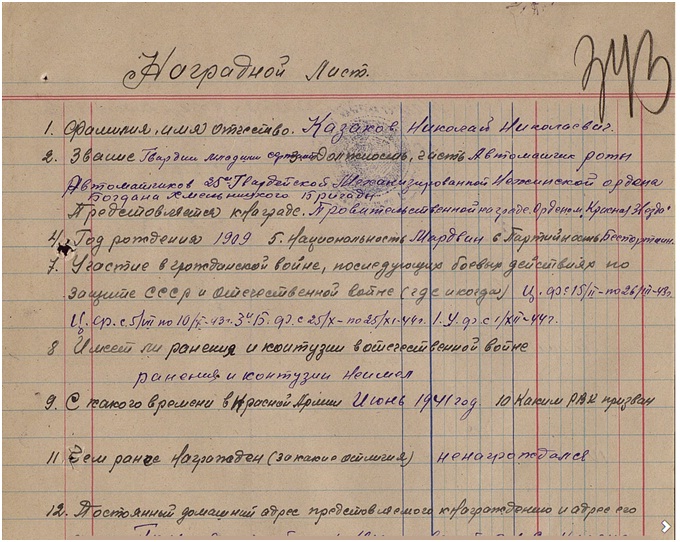 Наградной Лист.
1. Фамилия, имя отчество. Казаков Николай Николаевич.
2. Звание Гвардии младший сержант Должность, часть Автоматчик роты
Автоматчиков 25й Гвардейской Механизированной Нежинской ордена
Богдана Хмельницкого Бригады.
Представляется к Награде. Правительственной награде. Орденом, Красная Звезда"
4. Год рождения 1909 5. Национальность Мардвин 6 Партийность Беспартийн.
7. Участие в гражданской войне, последующих боевых действиях по
защите СССР и отечественной войне (где и когда) Ц. ф. с 15/II-по 26/III-43г.
Ц. ф. с 5/VII по 10/ -43г. 3й У. ф. с 25/X-по 25/XI-44г. 1. У. ф. с 1/XII-44г.
8 Имеет ли ранения и контузии в отечественной войне
ранения и контузии Неимел
9. С какого времени в Красной Армии Июнь 1941 год. 10 Каким РВК призван
11 Чем ранее награжден (за какие отличия) ненаграждался
12. Постоянный домашний адрес представляемого к награждению и адрес его